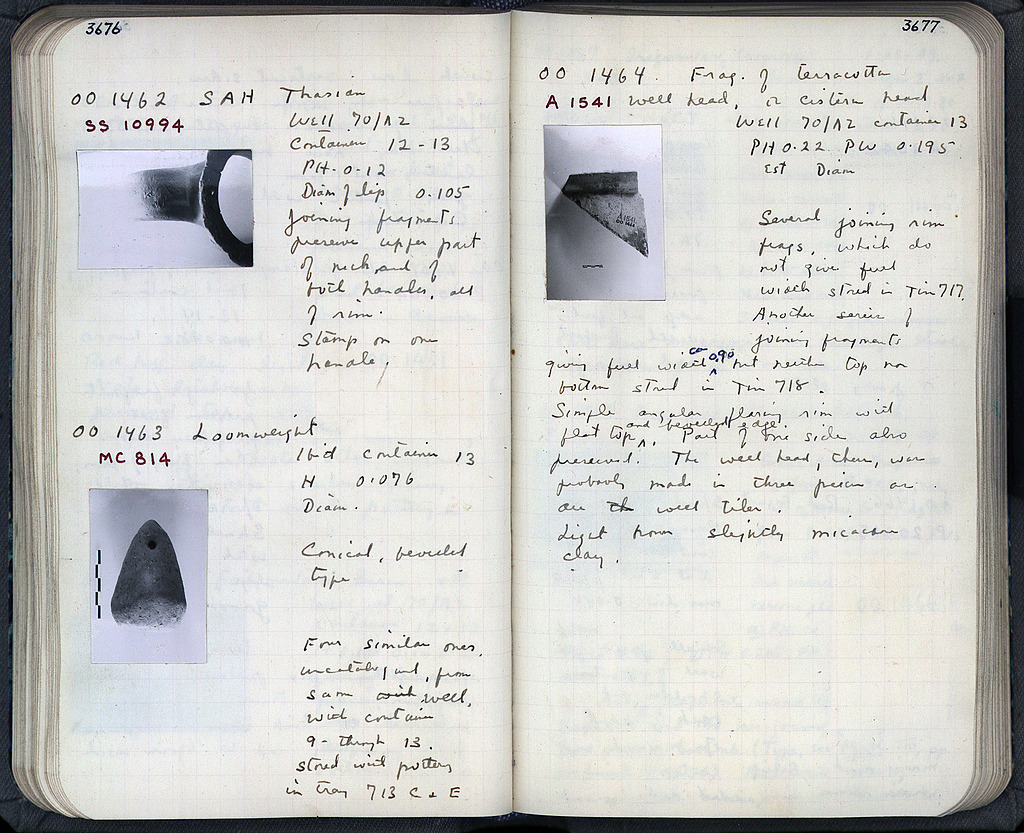 3676
OO 1462 SAH Thasian
SS 10994
Well 70/Λ2
Container 12-13
PH- 0-12
Diam of lip 0.105
Joining fragments
preserve upper part
of neck and of
both handles, all
of rim.
Stamp on one
handle,
OO 1463 Loomweight
MC 814
Ibid container 13
H 0.076
Diam.
Conical, beveled
type
Four similar ones,
uncatalogued, from
same well,
with container
9 - through 13.
stored with pottery
in tray 713 C & E
3677
OO 1464. Frag. of terracotta
A 1541 well head, or cistern head
Well 70/Λ2 container 13
PH 0.22 PW 0.195
Est Diam
Several joining rim
frags, which do
not give full
width stored in Tin 717.
Another series of
joining fragments
giving full width ca 0.90 but neither top nor
bottom stored in Tin 718.
Simple angular flaring rim with
flat top and beveled edge. Part of one side also
preserved. The well head, then, was
probably made in three pieces as
are the well tiles.
Light brown slightly micaceous
clay.